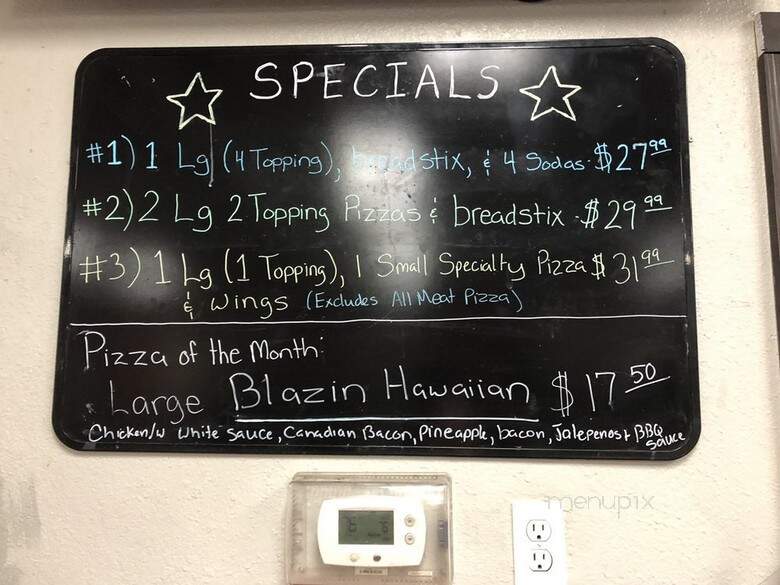 SPECIALS
#1) 1 Lg (4 Topping), breadstix, & 4 Sodas $27.99
#2) 2 Lg 2 Topping Pizzas & breadstix - $29.99
#3) 1 Lg (1 Topping), 1 Small Specialty Pizza $31.99
& wings (Excludes All Meat Pizza)
Pizza of the Month:
Large Blazin Hawaiian $17.50
Chicken/w White Sauce, Canadian Bacon, Pineapple, bacon, Jalepenos + BBQ Sauce
menupix